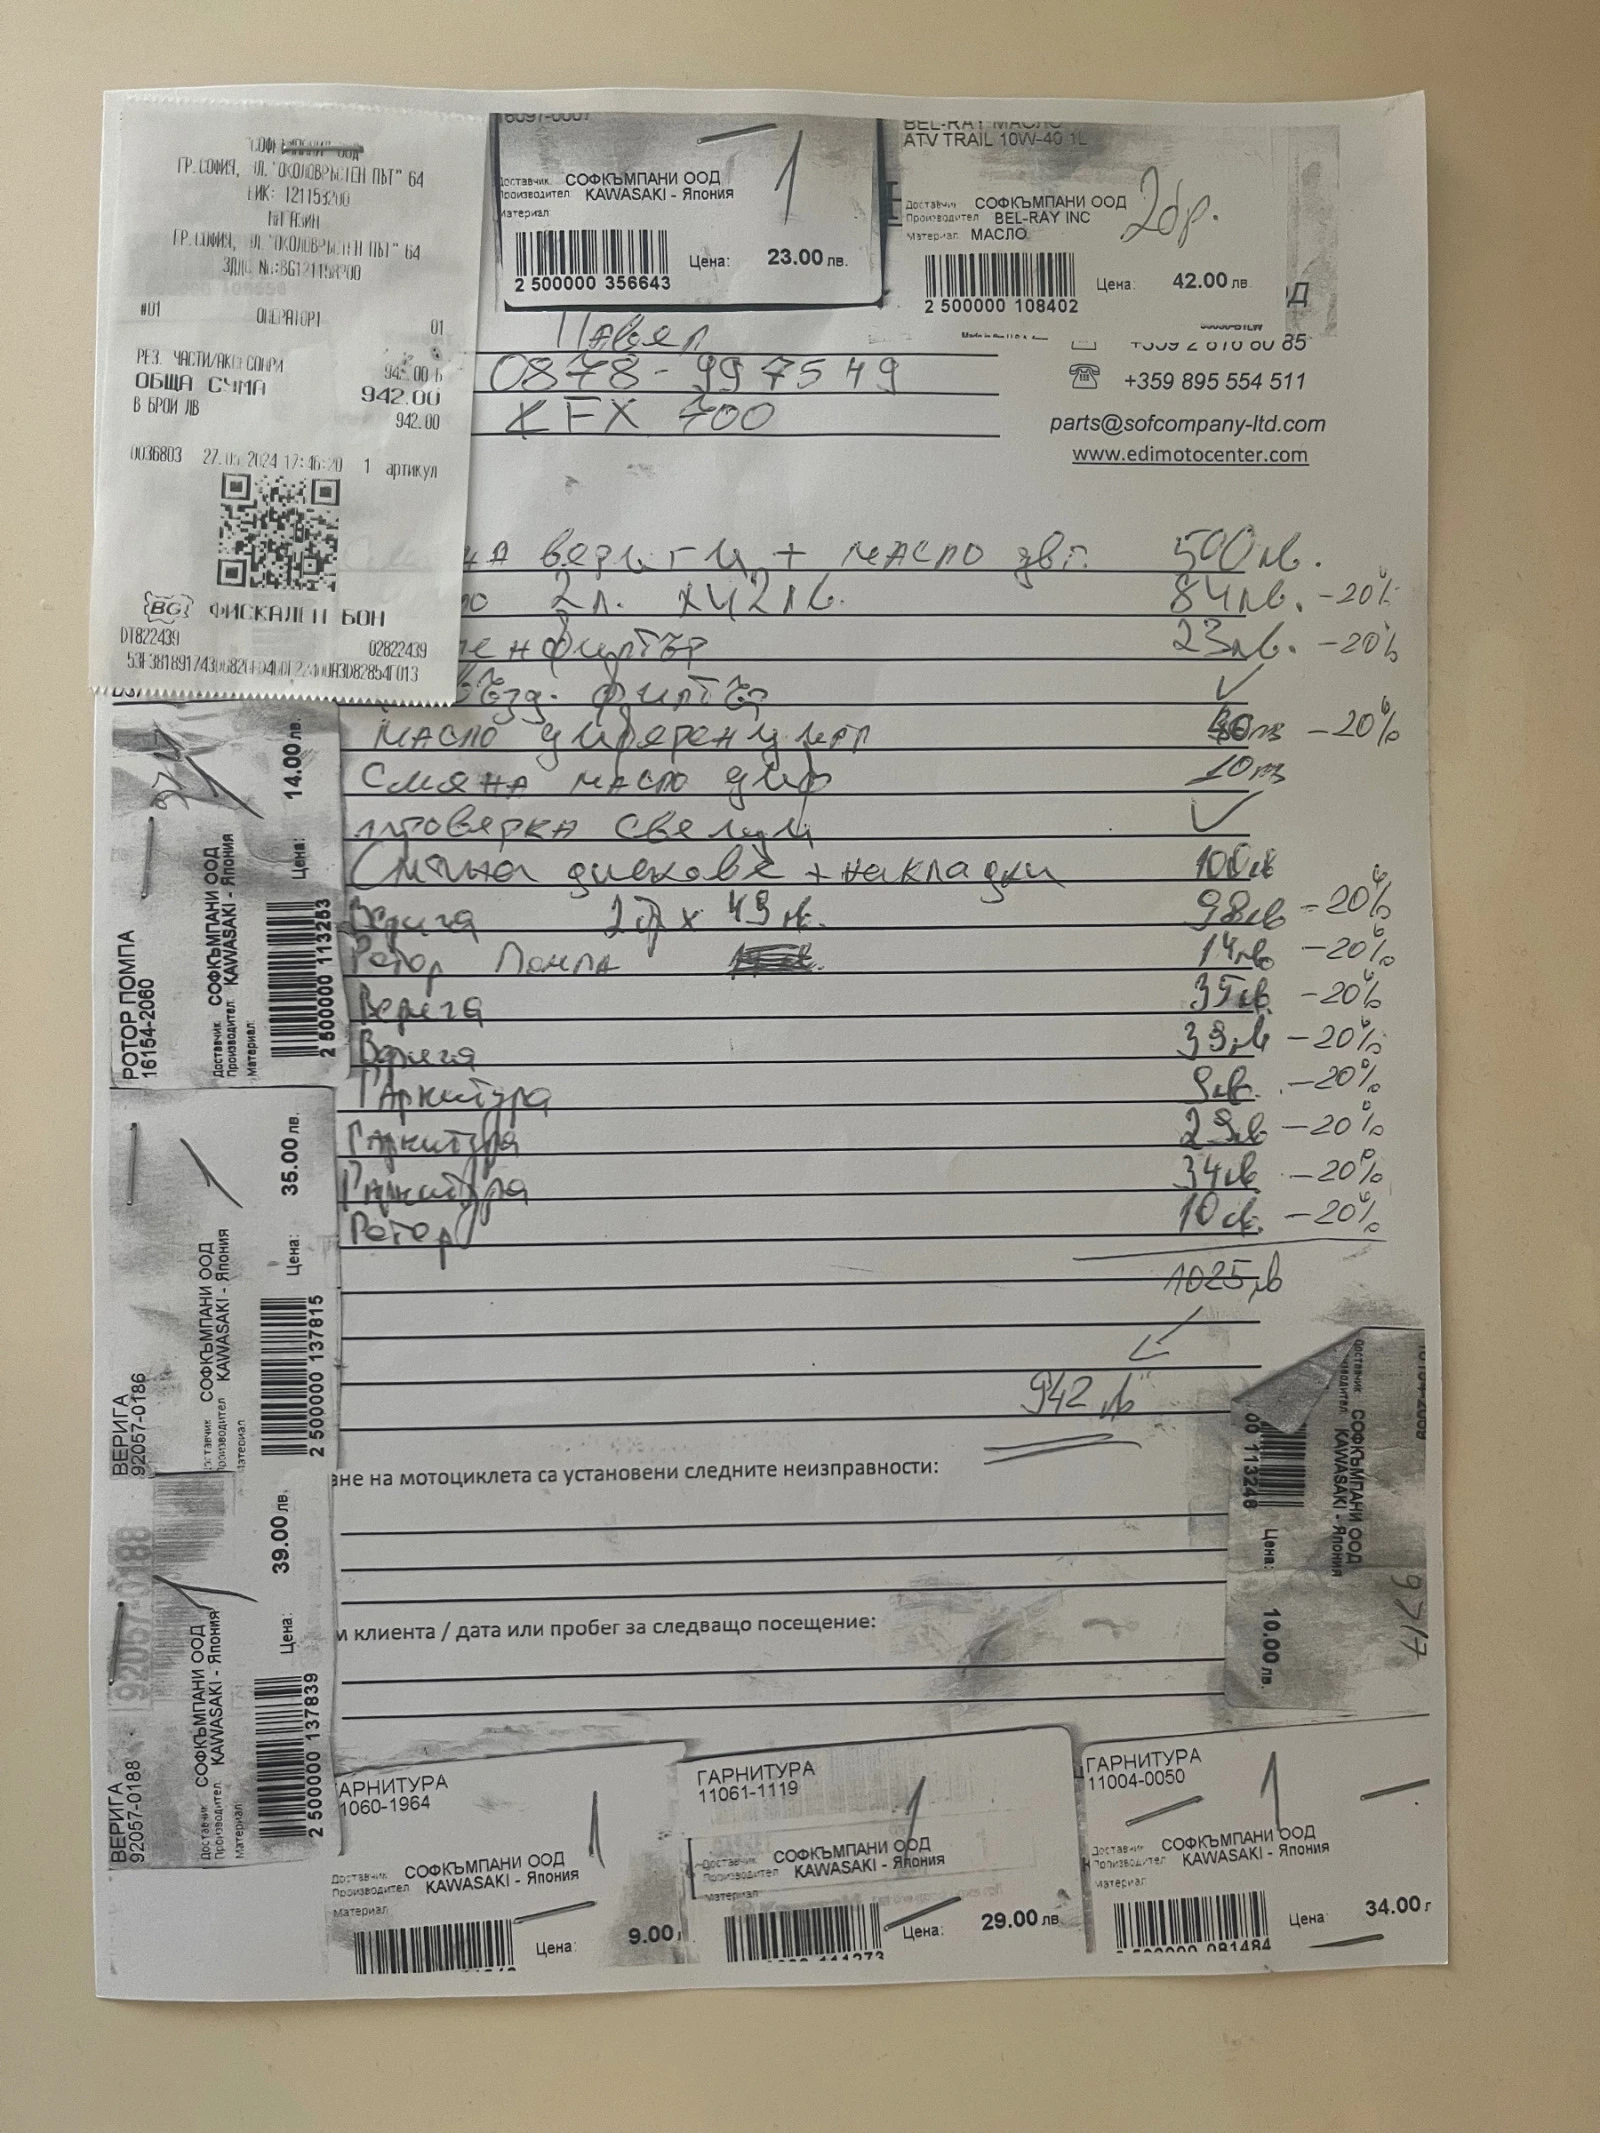 ГР.СОФИЯ, УЛ."ОКОЛОВРЪСТЕН ПЪТ" 64
ЕИК: 121153200
МАГАЗИН
ГР.СОФИЯ, УЛ."ОКОЛОВРЪСТЕН ПЪТ" 64
#01 ОПЕРАТОР1 01
РЕЗ. ЧАСТИ/АКСЕСОАРИ
ОБЩА СУМА 942.00
В БРОЙ ЛВ 942.00
0036803 2024 17:46:20 1 артикул
BG ФИСКАЛЕН БОН
DT822439 02822439
Доставчик: СОФКЪМПАНИ ООД
Производител: KAWASAKI - Япония
Материал
1
Цена: 23.00 лв.
2 500000 356643
BEL-RAY МАСЛО
ATV TRAIL 10W-40 1L
Доставчик СОФКЪМПАНИ ООД
Производител BEL-RAY INC
Материал: МАСЛО
2бр.
Цена: 42.00 лв.
2 500000 108402
Павел
0878-997549
KFX 700
+359 2 870 80 85
+359 895 554 511
parts@sofcompany-ltd.com
www.edimotocenter.com
вериги + масло двг. 500лв.
2л. х42лв. 84лв. -20%
филтър 23лв. -20%
филтър ✓
Масло диференциал -20%
Смяна масло диф 10лв
проверка свещи ✓
Смяна дискове + накладки 100лв
Верига 2бр х 49лв. 98лв -20%
Ротор Помпа 14лв -20%
Верига 35лв. -20%
Верига 39лв -20%
Гарнитура 9лв. -20%
Гарнитура 29лв -20%
Гарнитура 34лв -20%
Ротор 10лв. -20%
1025лв
942лв
ане на мотоциклета са установени следните неизправности:
м клиента / дата или пробег за следващо посещение:
РОТОР ПОМПА
16154-2060
Доставчик: СОФКЪМПАНИ ООД
Производител: KAWASAKI - Япония
Материал:
2 500000 113263
Цена: 14.00 лв.
ВЕРИГА
92057-0186
1
Доставчик: СОФКЪМПАНИ ООД
Производител KAWASAKI - Япония
Материал
2 500000 137815
Цена: 35.00 лв.
ВЕРИГА
92057-0188
92057-0188
1
Доставчик: СОФКЪМПАНИ ООД
Производител: KAWASAKI - Япония
Материал
2 500000 137839
Цена: 39.00 лв.
АРНИТУРА
1060-1964
1
Доставчик СОФКЪМПАНИ ООД
Производител KAWASAKI - Япония
Материал
Цена: 9.00
ГАРНИТУРА
11061-1119
1
Доставчик СОФКЪМПАНИ ООД
Производител KAWASAKI - Япония
Материал
Цена: 29.00 лв
ГАРНИТУРА
11004-0050
1
Доставчик СОФКЪМПАНИ ООД
Производител KAWASAKI - Япония
Материал
Цена: 34.00
2 500000 081484
Доставчик СОФКЪМПАНИ ООД
KAWASAKI - Япония
00 113248
Цена: 10.00 лв.